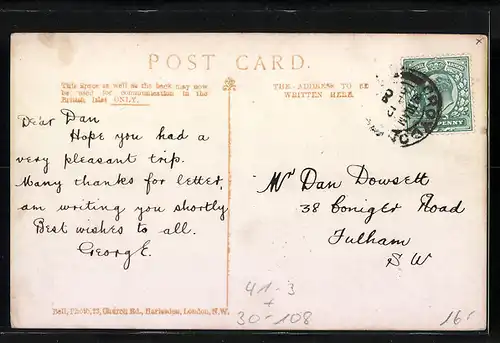 POST CARD.
This Space as well as the back may now
be used for communication in the
British Isles ONLY.
THE ADDRESS TO BE
WRITTEN HERE.
Dear Dan
Hope you had a
very pleasant trip.
Many thanks for letter,
am writing you shortly
Best wishes to all.
George.
Mr Dan Dowsett
38 Coniger Road
Fulham
S W
Bell, Photo, Church Rd., Harlesden, London, N.W.
41-3
+
30-108
16'